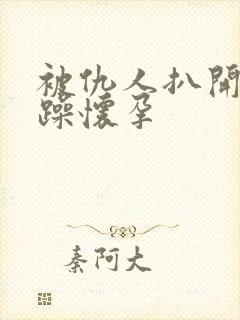 被仇人扒開
躁懷孕
秦阿大